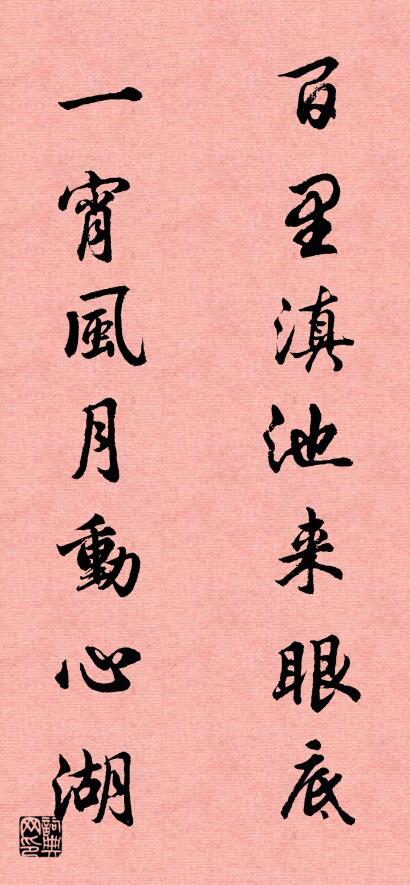 百里滇池来眼底
一宵風月動心湖